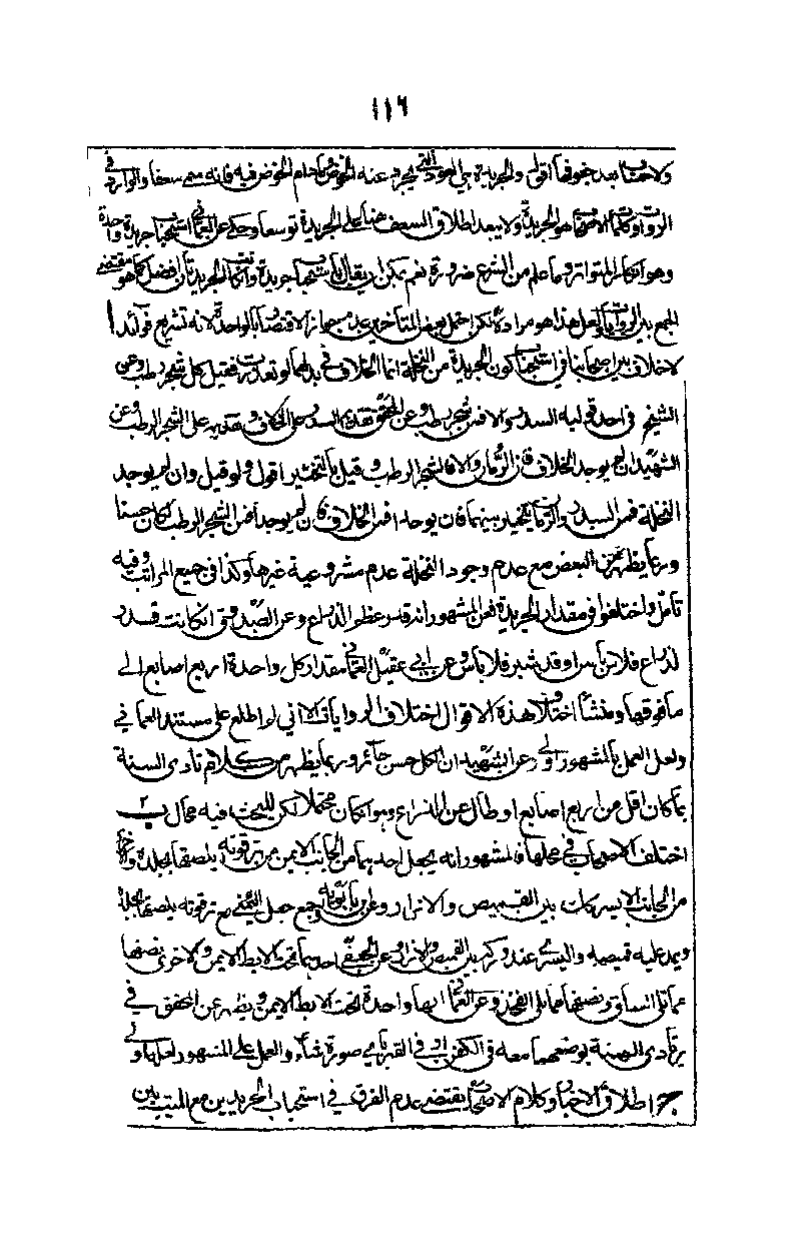 ١١٦
ولا خضاب بعد جفوفها اقول والجريدة هي العود التي يجرد عنه الخوص وما دام الخوص فيه فانه يسمى سعفا والوارد في
الروايات وكلام الاصحاب هو الجريدة ولا يبعد اطلاق السعف هنا على الجريدة توسعا وحكي عن العماني استحباب جريدة واحدة
وهو انكار للمتواتر وما علم من الشرع ضرورة نعم يمكن ان يقال باستحباب جريدة وانكان الجريدتان افضل كما هو مقتضى
الجمع بين الروايات ولعل هذا هو مراده لكن احتمل بعض المتأخرين عدم جواز الاقتصار بالواحدة لانه تشريع فوائد ا
لا خلاف بين اصحابنا في استحباب كون الجريدة من النخلة انما الخلاف في بدلها لو تعذرت فقيل كل شجر رطب وعن
الشيخ في احد قوليه السدر والا فمن شجر رطب وعن المحقق تقديم السدر على الخلاف وتقديمه على الشجر الرطب وعن
الشهيد ان لم يوجد الخلاف فمن الرمان والا فالشجر الرطب وقيل بالتخيير اقول ولو قيل وان لم يوجد
النخلة فمن السدر والرمان يتخير بينهما فان يوجد افمن الخلاف فان لم يوجد فمن الشجر الرطب لكان حسنا
وربما يظهر من البعض مع عدم وجود النخلة عدم مشروعية غيرها وكذا في جميع المراتب وفيه
تأمل واختلفوا في مقدار الجريدة فعن المشهور انه قدر عظم الذراع وعن الصدوق انكانت قدر
لذراع فلا بأس او قدر شبر فلا بأس وعن ابي عقيل العماني مقدار كل واحدة اربع اصابع الى
ما فوقها ومنشأ اختلاف هذه الاقوال اختلاف الروايات الا اني لم اطلع على مستند العماني
ولعل العمل بالمشهور اولى وعن الشهيد ان الكل حسن جائز وربما يظهر من كلام نادى السنة
بما كان اقل من اربع اصابع او طال عن الذراع وهو انكان محتملا لكن للبحث فيه مجال ب
اختلف الاصحاب في محلها فالمشهور انه يجعل احديهما من الجانب الايمن من ترقوته يلصقها بجلده والاخرى
من الجانب الايسر كانت بين القميص والازار وعن بابويه وجمع جعل اليمنى مع ترقوته يلصقها بجلده
ويمد عليه قميصه واليسرى عند وركه بين القميص والازار وعن الجعفي احديهما تحت الابط الايمن والاخرى نصفها
مما يلي الساق ونصفها مما يلي الفخذ وعن العماني انها واحدة تحت الابط الايمن ويظهر عن المحقق في
يرتادى السنة بوضعهما معه في الكفن او في القبر باي صورة شاء والعمل على المشهور لعلها اولى
ج اطلاق الاخبار وكلام الاصحاب يقتضى عدم الفرق في استحباب الجريدتين مع الميت بين